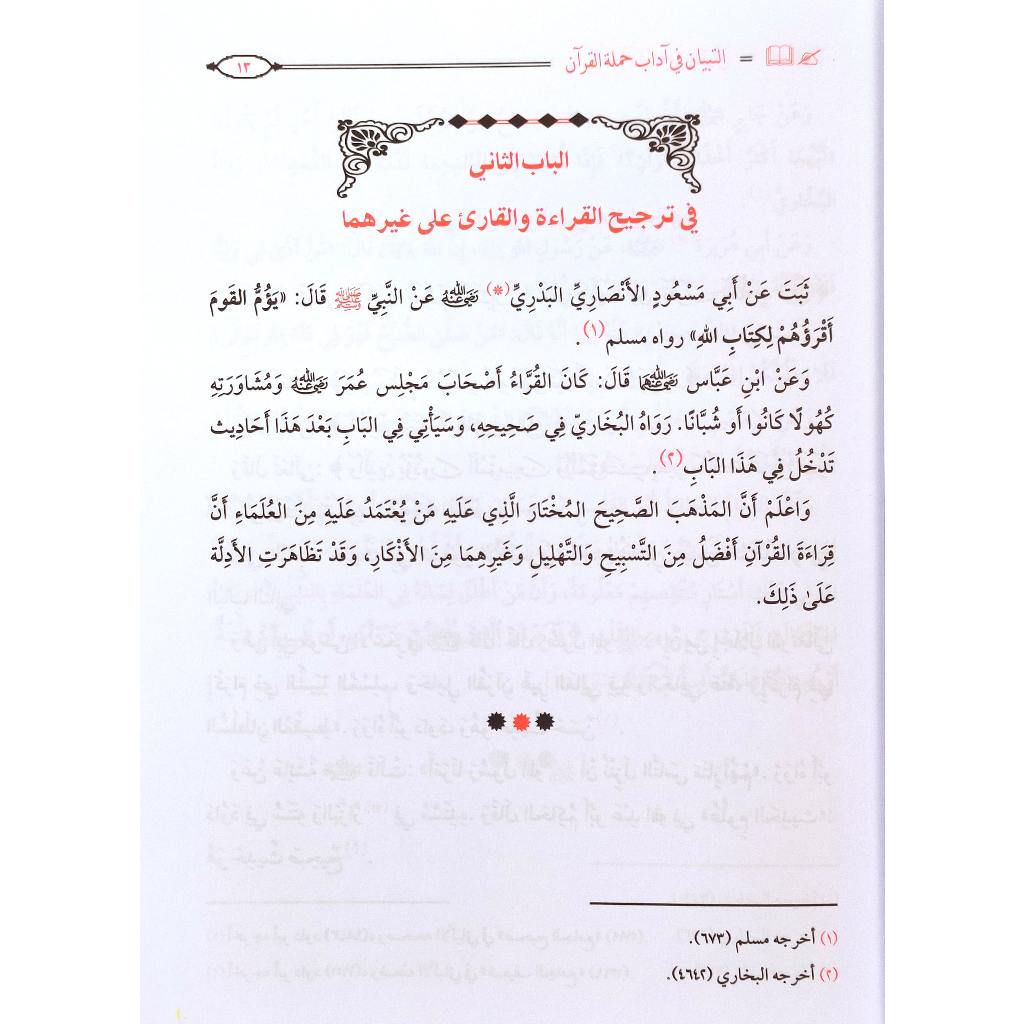 التبيان في آداب حملة القرآن = ١٣
الباب الثاني
في ترجيح القراءة والقارئ على غيرهما
ثَبَتَ عَنْ أَبِي مَسْعُودٍ الأَنْصَارِيِّ البَدْرِيِّ(*) رَضِيَ اللَّهُ عَنْهُ عَنْ النَّبِيِّ ﷺ قَالَ: «يَؤُمُّ القَومَ
أَقْرَؤُهُمْ لِكِتَابِ اللهِ» رواه مسلم(١).
وَعَنْ ابْنِ عَبَّاس رَضِيَ اللَّهُ عَنْهُمَا قَالَ: كَانَ القُرَّاءُ أَصْحَابَ مَجْلِس عُمَرَ رَضِيَ اللَّهُ عَنْهُ وَمُشَاوَرَتِهِ
كُهُولًا كَانُوا أَو شُبَّانًا. رَوَاهُ البُخَاريّ فِي صَحِيحِهِ، وَسَيَأْتِي فِي البَابِ بَعْدَ هَذَا أَحَادِيث
تَدْخُلُ فِي هَذَا البَابِ(٢).
وَاعْلَمْ أَنَّ المَذْهَبَ الصَّحِيحَ المُخْتَارَ الَّذِي عَلَيهِ مَنْ يُعْتَمَدُ عَلَيهِ مِنَ العُلَمَاءِ أَنَّ
قِرَاءَةَ القُرْآنِ أَفْضَلُ مِنَ التَّسْبِيحِ وَالتَّهْلِيلِ وَغَيرِهِمَا مِنَ الأَذْكَارِ، وَقَدْ تَظَاهَرَتِ الأَدِلَّة
عَلَىٰ ذَلِكَ.
(١) أخرجه مسلم (٦٧٣).
(٢) أخرجه البخاري (٤٦٤٢).